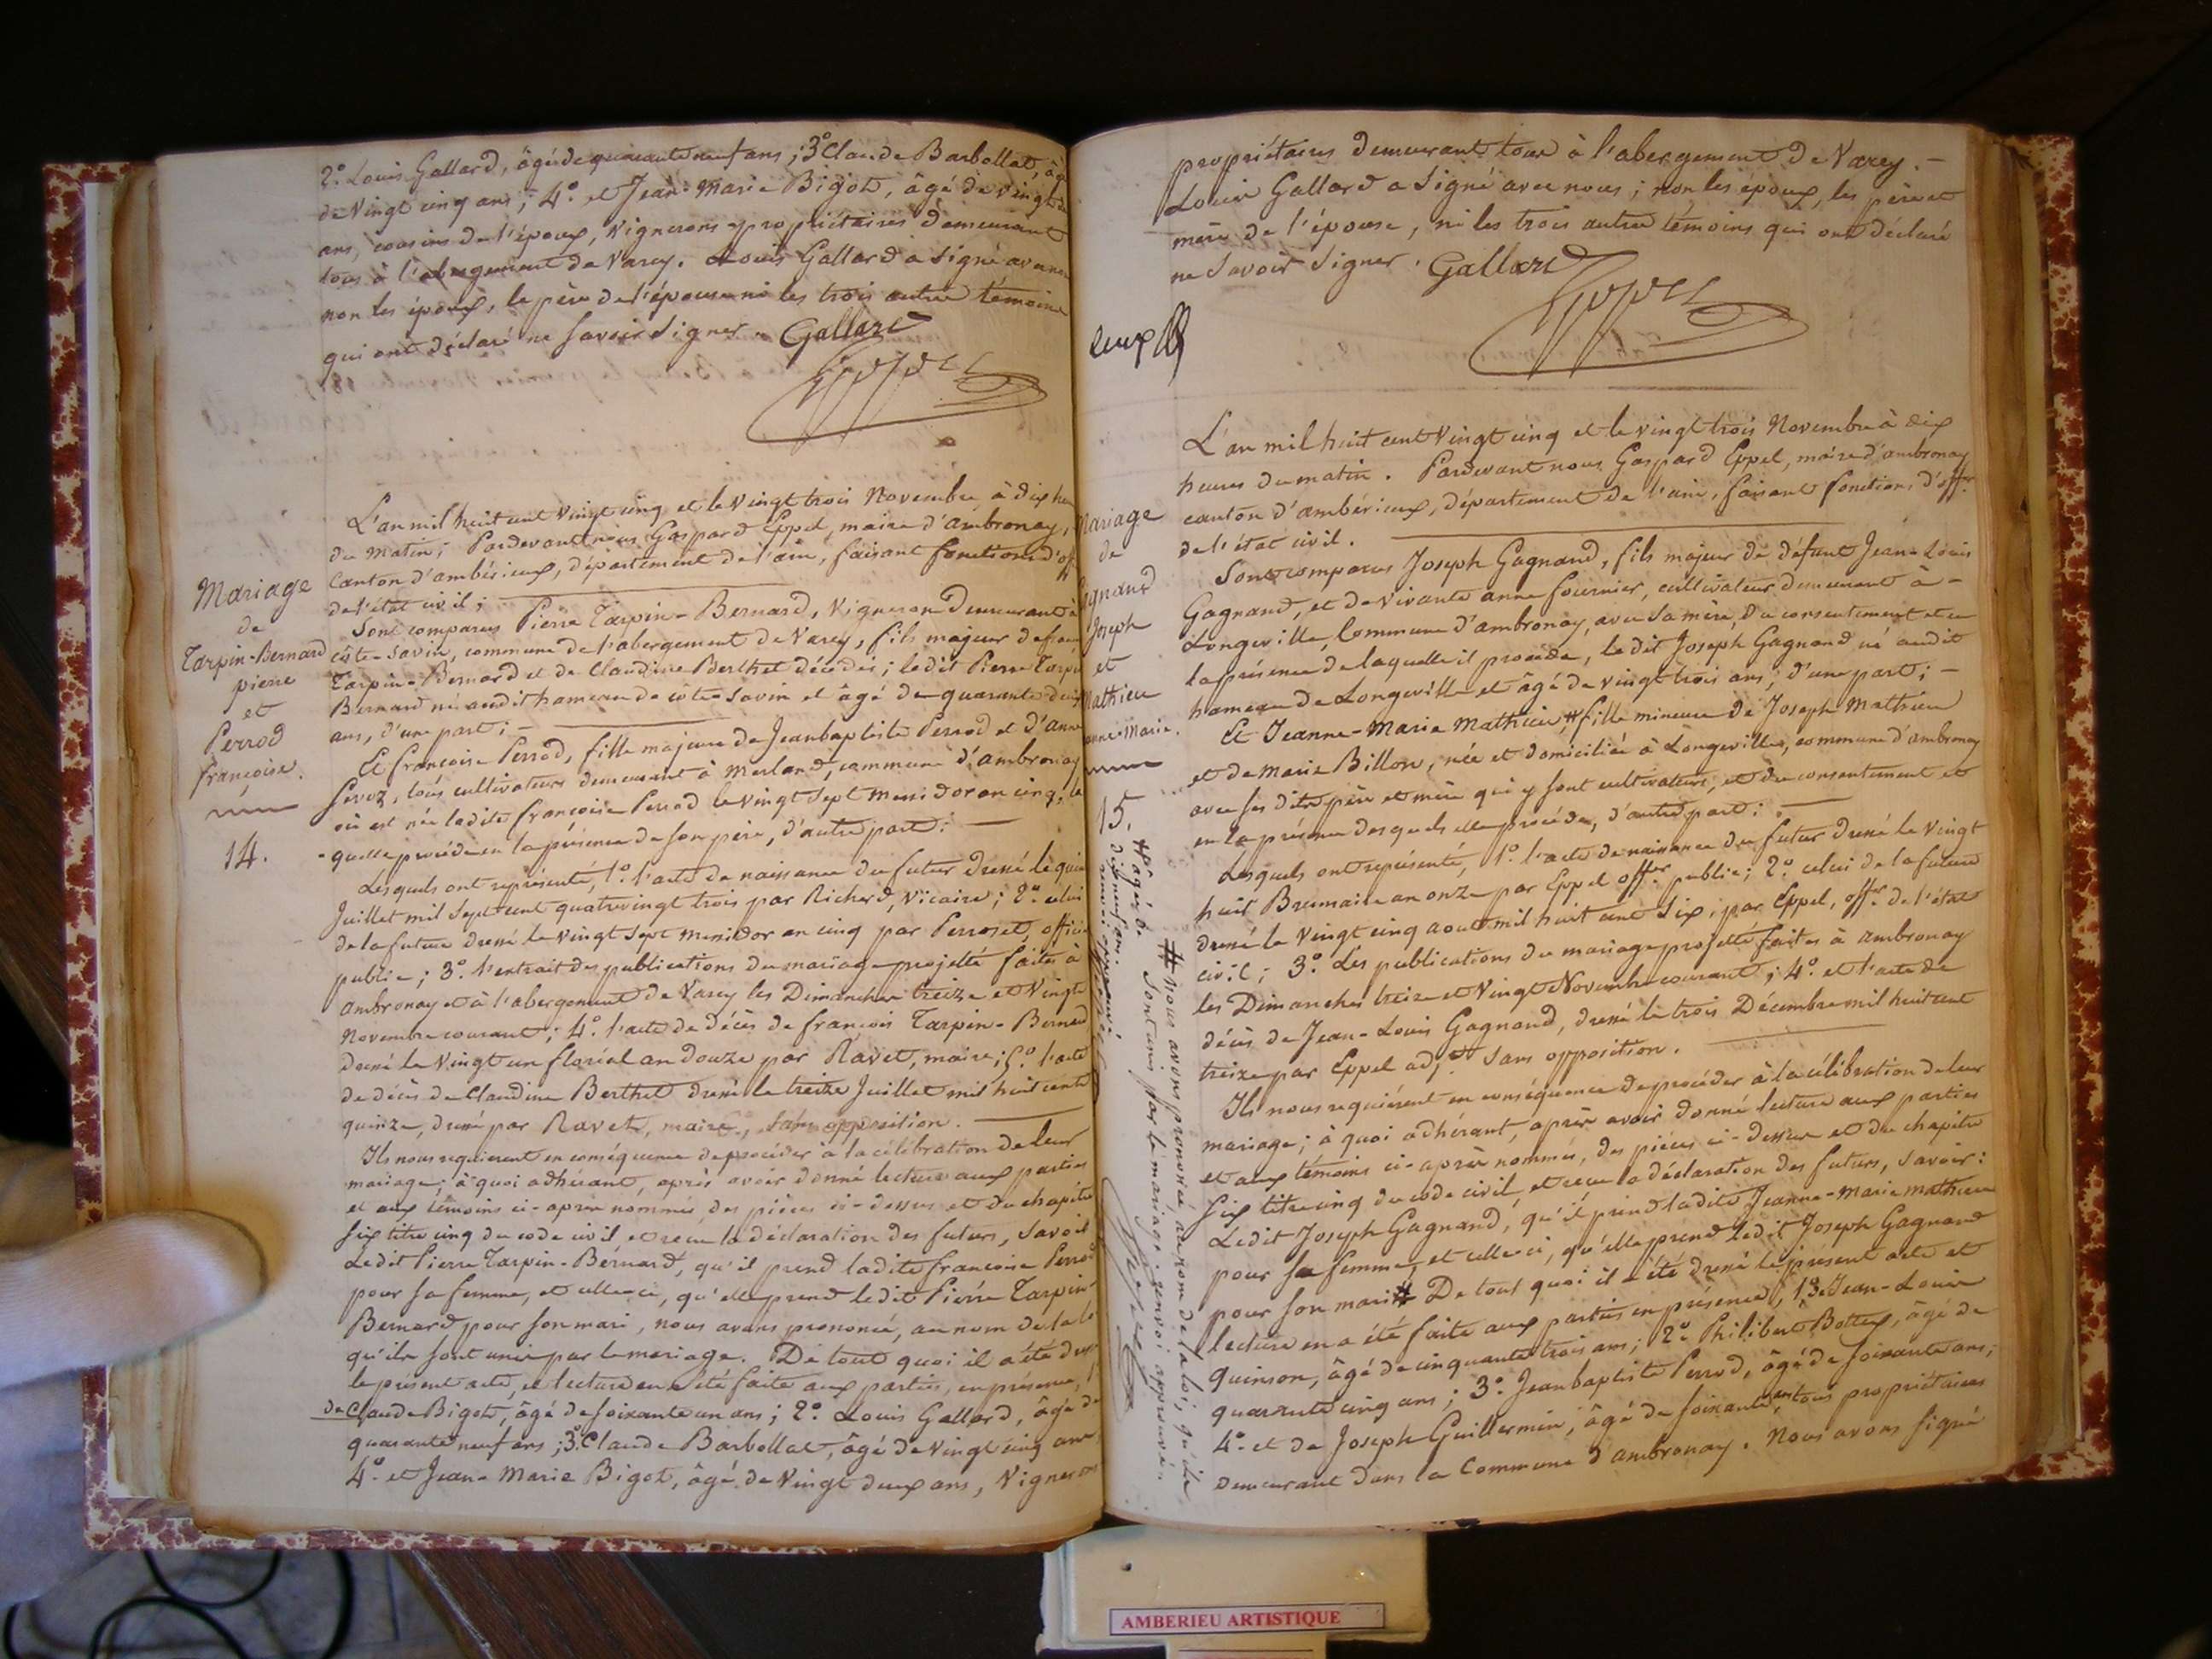 2.° Louis Gallard, âgé de quarante neuf ans ; 3.° Claude Barbollat, âgé
de vingt cinq ans ; 4.° et Jean-Marie Bigot, âgé de vingt
ans, cousins de l'époux, vignerons propriétaires demeurant
tous à l'abergement de Varey. Louis Gallard a signé avec nous
non les époux, le père de l'épouse ni les trois autres témoins
qui ont déclaré ne savoir signer. Gallard
Eppel
Mariage
de
Tarpin-Bernard
pierre
et
Perrod
françoise.
14.
L'an mil huit cent vingt cinq et le vingt trois Novembre, à dix heu
du matin ; Pardevant nous Gaspard Eppel, maire d'ambronay,
Canton d'ambérieux, département de l'ain, faisant fonctions d'off
de l'état civil ;
Sont comparus Pierre Tarpin-Bernard, Vigneron demeurant à
côte-Savin, commune de l'abergement de Varey, fils majeur de fran
Tarpin-Bernard et de Claudine Berthet décédés ; ledit Pierre Tarpin
Bernard né audit hameau de côte-Savin et âgé de quarante deux
ans, d'une part ; -
Et françoise Perrod, fille majeure de Jeanbaptiste Perrod et d'anne
fevoz, tous cultivateurs demeurant à Merland, commune d'ambronay
où est née ladite françoise Perrod le vingt sept Messidor an cinq, la
-quelle procéde en la présence de son père, d'autre part ; -
Lesquels ont représenté, 1.° l'acte de naissance du futur dressé le quin
Juillet mil sept cent quatrevingt trois par Richerd, Vicaire ; 2.° celui
de la future dressé le vingt sept messidor an cinq par Perroset, officier
public ; 3.° l'extrait des publications du mariage projetté faites à
ambronay et à l'abergement de Varey les Dimanches treize et Vingt
Novembre courant ; 4.° l'acte de décès de françois Tarpin-Bernard
dressé le Vingt un floréal an douze par Ravet, maire ; 5.° l'acte
de décès de Claudine Berthet dressé le treize Juillet mil huit cent
quinze, dressé par Ravet, maire, sans opposition.
Ils nous requièrent en conséquence de procéder à la célébration de leur
mariage ; à quoi adhérant, après avoir donné lecture aux parties
et aux témoins ci-après nommés, des pièces ci-dessus et du chapitre
six titre cinq du code civil et reçu la déclaration des futurs, savoir
Ledit Pierre Tarpin-Bernard, qu'il prend ladite françoise Perrod
pour sa femme, et celle-ci, qu'elle prend ledit Pierre Tarpin-
Bernard pour son mari, nous avons prononcé, au nom de la loi
qu'ils sont unis par le mariage. De tout quoi il a été dressé
le présent acte, et lecture en a été faite aux parties, en présence, 1.°
de Claude Bigot, âgé de soixante un ans ; 2.° Louis Gallard, âgé de
quarante neuf ans ; 3.° Claude Barbollat, âgé de vingt cinq ans
4.° et Jean-Marie Bigot, âgé de Vingt deux ans, Vignerons
propriétaires demeurant tous à l'abergement de Varey. -
Louis Gallard a signé avec nous ; non les époux, les père et
mère de l'épouse, ni les trois autres témoins qui ont déclaré
ne savoir signer. Gallard
Eppel
Mariage
de
Gagnand
Joseph
et
Mathieu
anne-Marie.
15.
L'an mil huit cent Vingt cinq et le vingt trois Novembre à dix
heures du matin. Pardevant nous Gaspard Eppel, maire d'ambronay
canton d'ambérieux, département de l'ain, faisant fonctions d'offer
de l'état civil.
Sont comparus Joseph Gagnand, fils majeur de défunt Jean-Louis
Gagnand, et de vivante anne fournier, cultivateur demeurant à -
Longeville, Commune d'ambronay, avec sa mère, du consentement et en
la présence de laquelle il procéde, ledit Joseph Gagnand né audit
hameau de Longeville et âgé de vingt trois ans ; d'une part ; -
Et Jeanne-Marie Mathieu, # fille mineure de Joseph Mathieu
et de Marie Billon, née et domiciliée à Longeville, commune d'ambronay
avec ses dits père et mère qui y sont cultivateurs, et du consentement et
en la présence desquels elle procéde, d'autre part ;
Lesquels ont représenté, 1.° l'acte de naissance du futur dressé le Vingt
huit Brumaire an onze par Eppel offer public ; 2.° celui de la future
dressé le Vingt cinq aout mil huit cent six, par Eppel, offer de l'état
civil ; 3.° Les publications du mariage projetté faites à ambronay
les Dimanches treize et Vingt Novembre courant ; 4.° et l'acte de
décès de Jean-Louis Gagnand, dressé le trois Décembre mil huit cent
treize par Eppel adj.t sans opposition.
Ils nous requièrent en conséquence de procéder à la célébration de leur
mariage ; à quoi adhérant, après avoir donné lecture aux parties
et aux témoins ci-après nommés, des pièces ci-dessus et du chapitre
six titre cinq du code civil, et reçu la déclaration des futurs, savoir :
Ledit Joseph Gagnand, qu'il prend ladite Jeanne-Marie Mathieu
pour sa femme, et celle-ci, qu'elle prend ledit Joseph Gagnand
pour son mari # De tout quoi il a été dressé le présent acte et
lecture en a été faite aux parties en présence, 1.° de Jean-Louis
Quinson, âgé de cinquante trois ans ; 2.° Philibert Bottex, âgé de
quarante cinq ans ; 3.° Jeanbaptiste Perrod, âgé de soixante ans ;
4.° et de Joseph Guillermin, âgé de soixante ans, tous propriétaires
demeurant dans la Commune d'ambronay. Nous avons signé
# âgée de
dixneuf ans.
renvoi approuvé
Eppel
# nous avons prononcé au nom de la loi, qu'ils
sont unis par le mariage. renvoi approuvé.
Eppel
AMBERIEU ARTISTIQUE